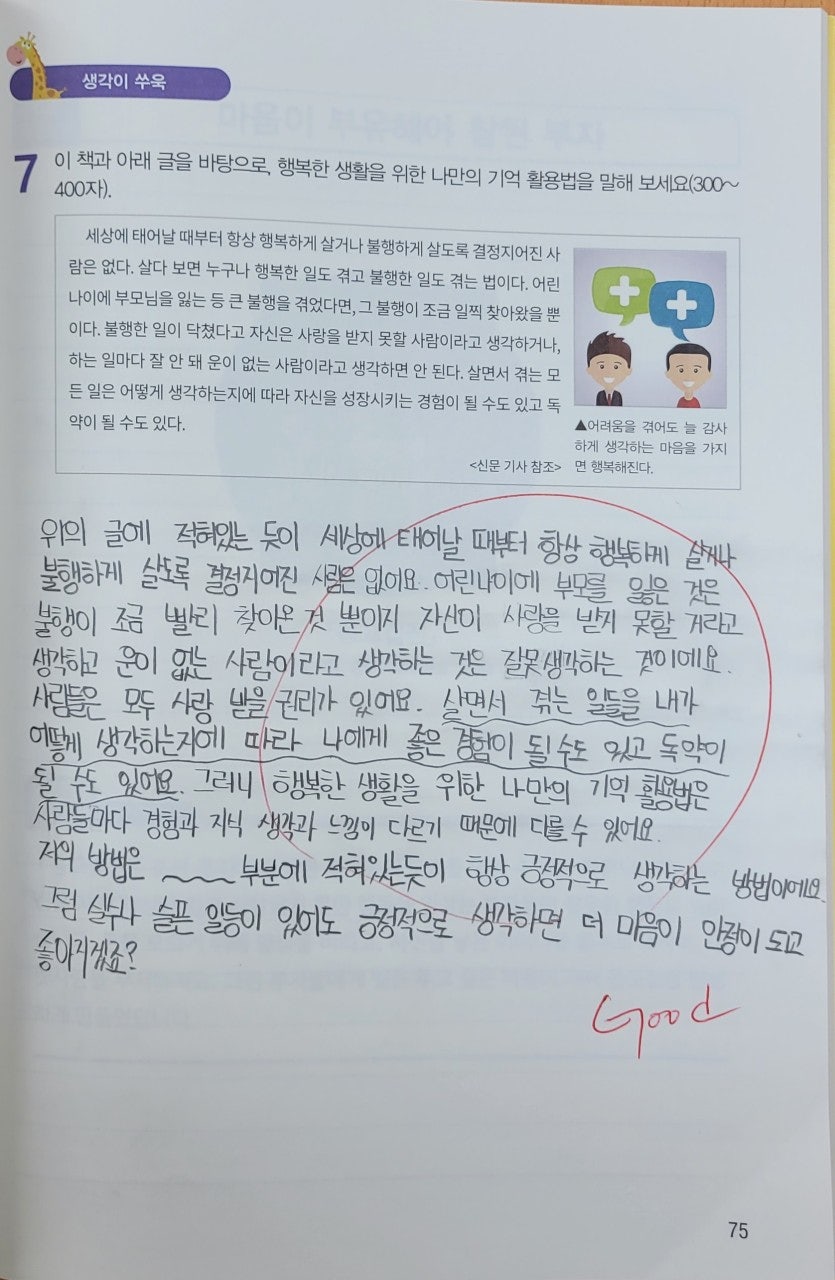 생각이 쑤욱
7 이 책과 아래 글을 바탕으로, 행복한 생활을 위한 나만의 기억 활용법을 말해 보세요(300~
400자).
세상에 태어날 때부터 항상 행복하게 살거나 불행하게 살도록 결정지어진 사
람은 없다. 살다 보면 누구나 행복한 일도 겪고 불행한 일도 겪는 법이다. 어린
나이에 부모님을 잃는 등 큰 불행을 겪었다면, 그 불행이 조금 일찍 찾아왔을 뿐
이다. 불행한 일이 닥쳤다고 자신은 사랑을 받지 못할 사람이라고 생각하거나,
하는 일마다 잘 안 돼 운이 없는 사람이라고 생각하면 안 된다. 살면서 겪는 모
든 일은 어떻게 생각하는지에 따라 자신을 성장시키는 경험이 될 수도 있고 독
약이 될 수도 있다.
<신문 기사 참조>
▲어려움을 겪어도 늘 감사
하게 생각하는 마음을 가지
면 행복해진다.
위의 글에 적혀있는 듯이 세상에 태어날 때부터 항상 행복하게 살거나
불행하게 살도록 결정지어진 사람은 없어요. 어린나이에 부모를 잃은 것은
불행이 조금 빨리 찾아온 것 뿐이지 자신이 사랑을 받지 못할 거라고
생각하고 운이 없는 사람이라고 생각하는 것은 잘못생각하는 것이에요.
사람들은 모두 사랑 받을 권리가 있어요. 살면서 겪는 일들을 내가
어떻게 생각하는지에 따라 나에게 좋은 경험이 될 수도 있고 독약이
될 수도 있어요. 그러니 행복한 생활을 위한 나만의 기억 활용법은
사람들마다 경험과 지식 생각과 느낌이 다르기 때문에 다를 수 있어요.
저의 방법은 부분에 적혀있는듯이 항상 긍정적으로 생각하는 방법이에요.
그럼 실수나 슬픈 일등이 있어도 긍정적으로 생각하면 더 마음이 안정이 되고
좋아지겠죠?
Good
75